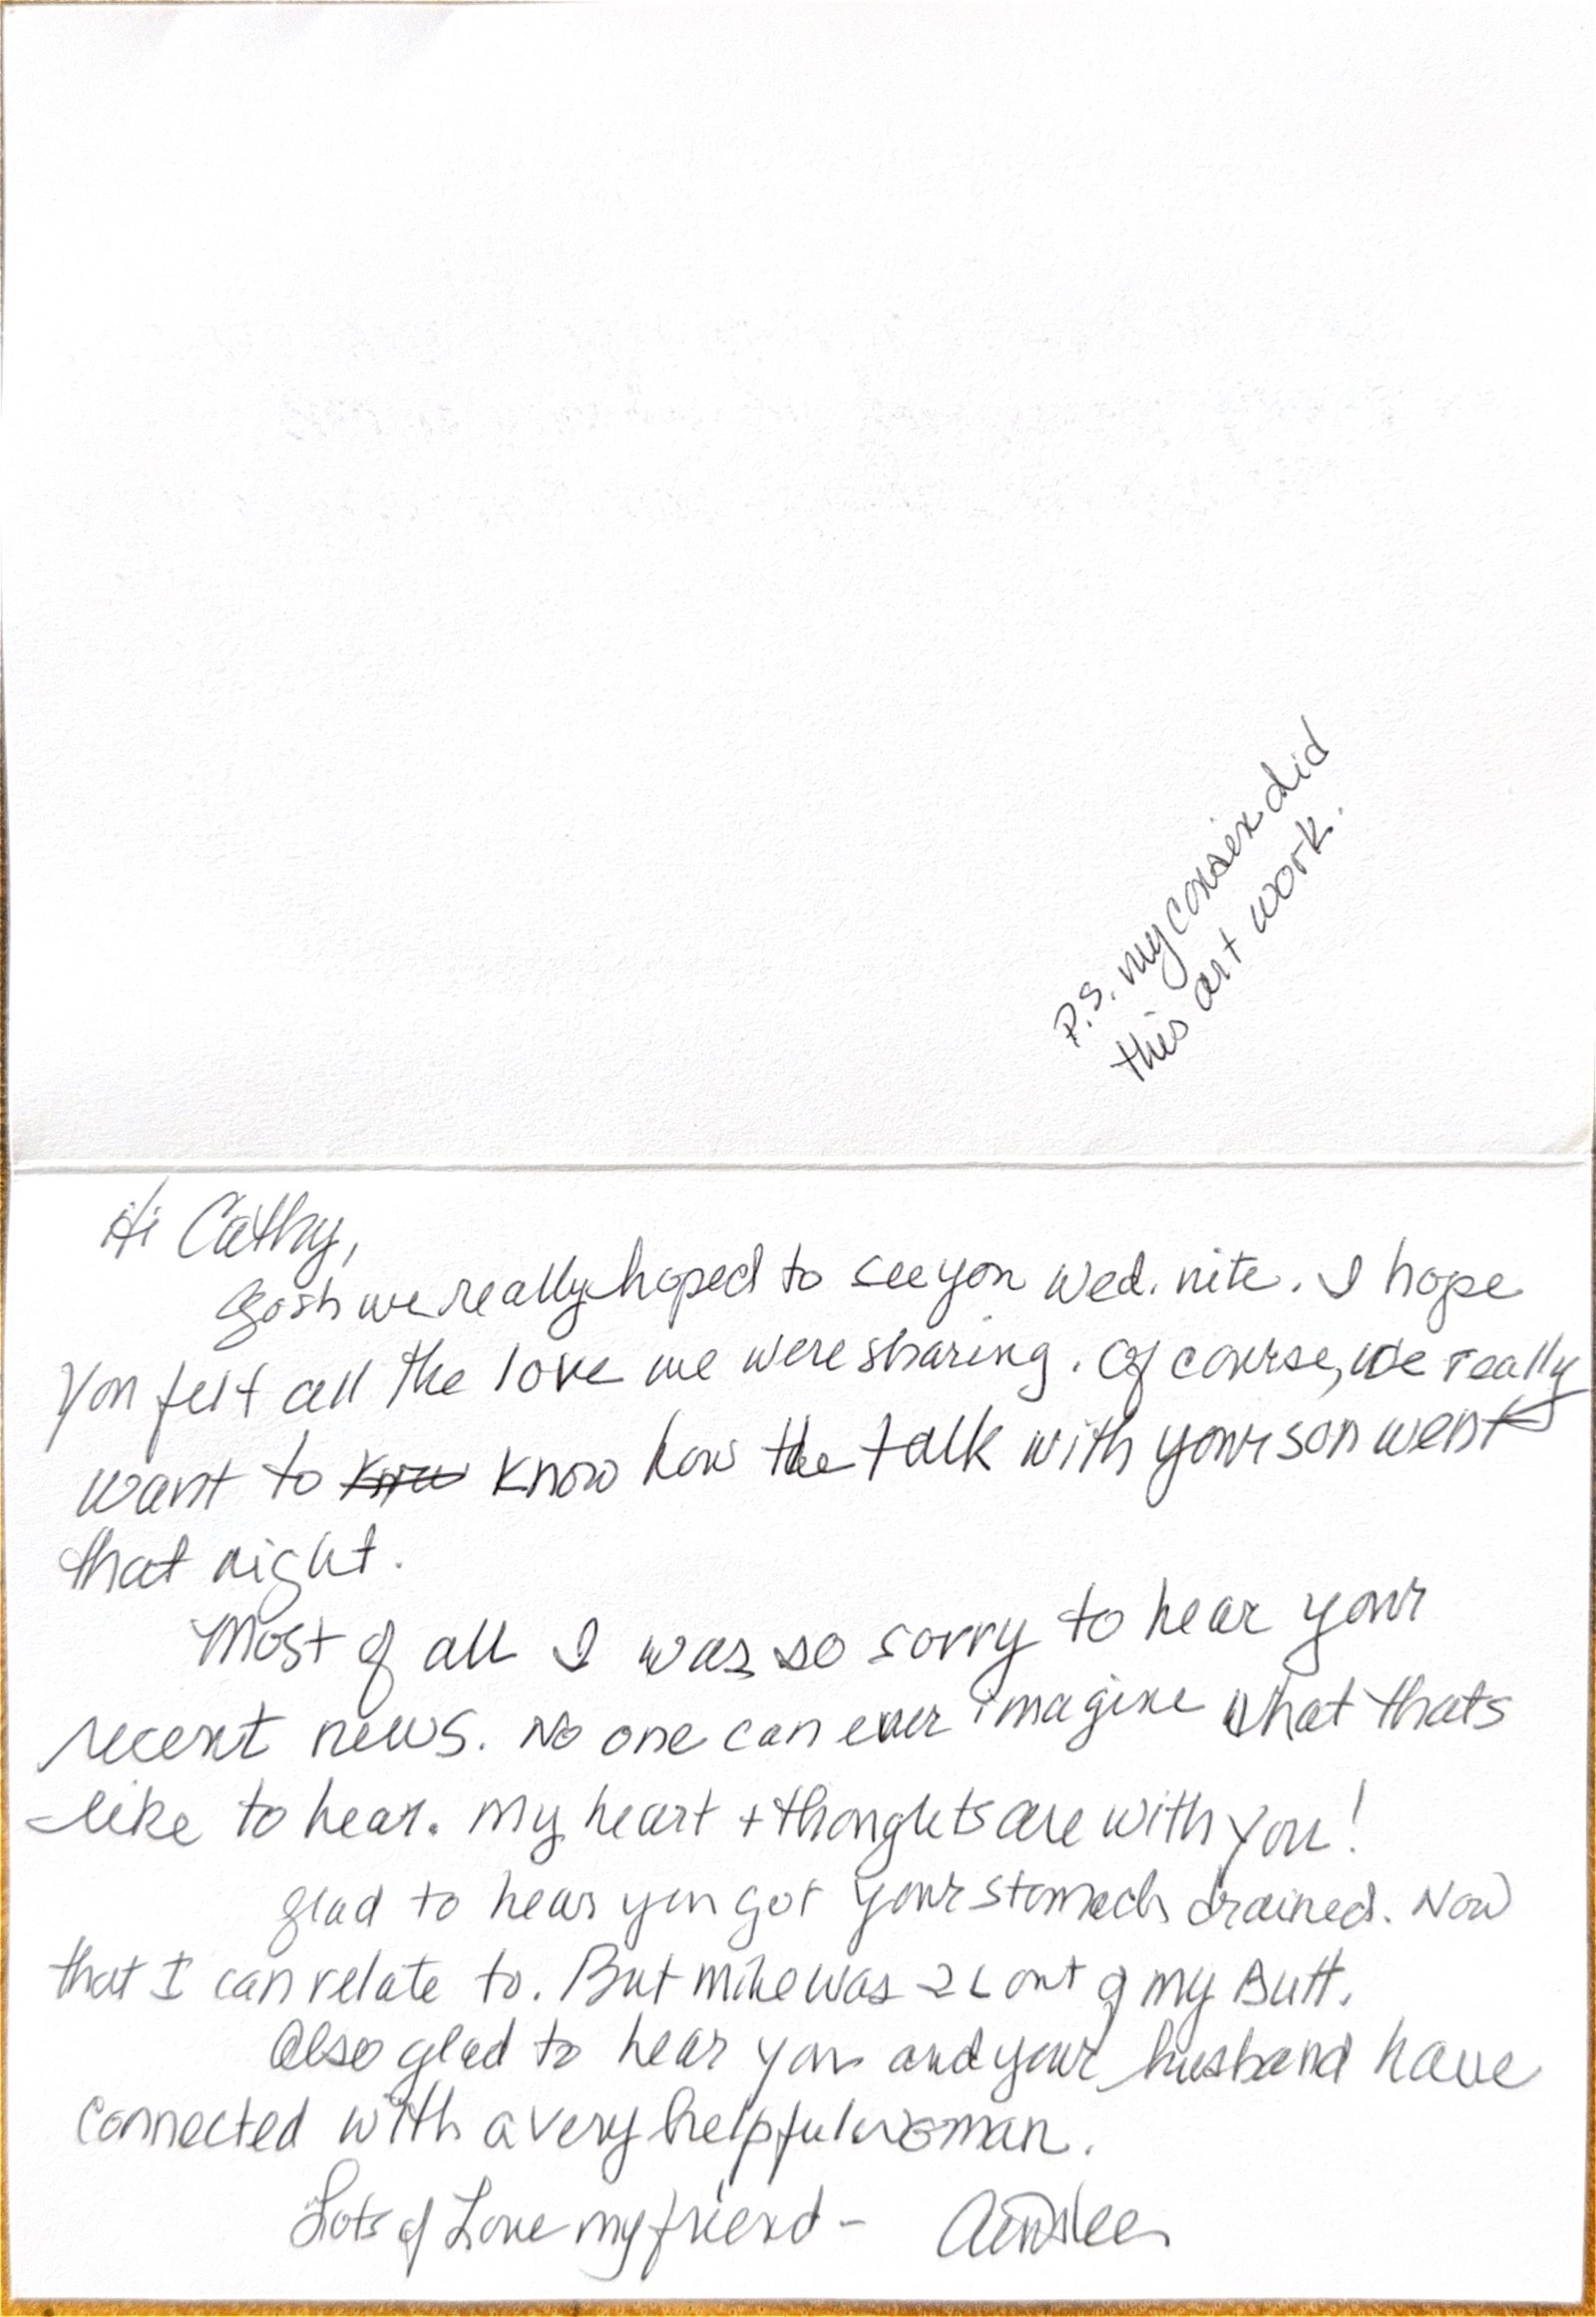 P.S. my cousin did
this art work.
Hi Cathy,
Gosh we really hoped to see you Wed. nite. I hope
you felt all the love we were sharing. Of course, we really
want to know how the talk with your son went
that night.
Most of all I was so sorry to hear your
recent news. No one can ever imagine what thats
like to hear. My heart + thoughts are with you!
Glad to hear you got your stomach drained. Now
that I can relate to. But mine was 2 L out of my Butt.
Also glad to hear you and your husband have
connected with a very helpful woman.
Lots of Love my friend - Ainslee